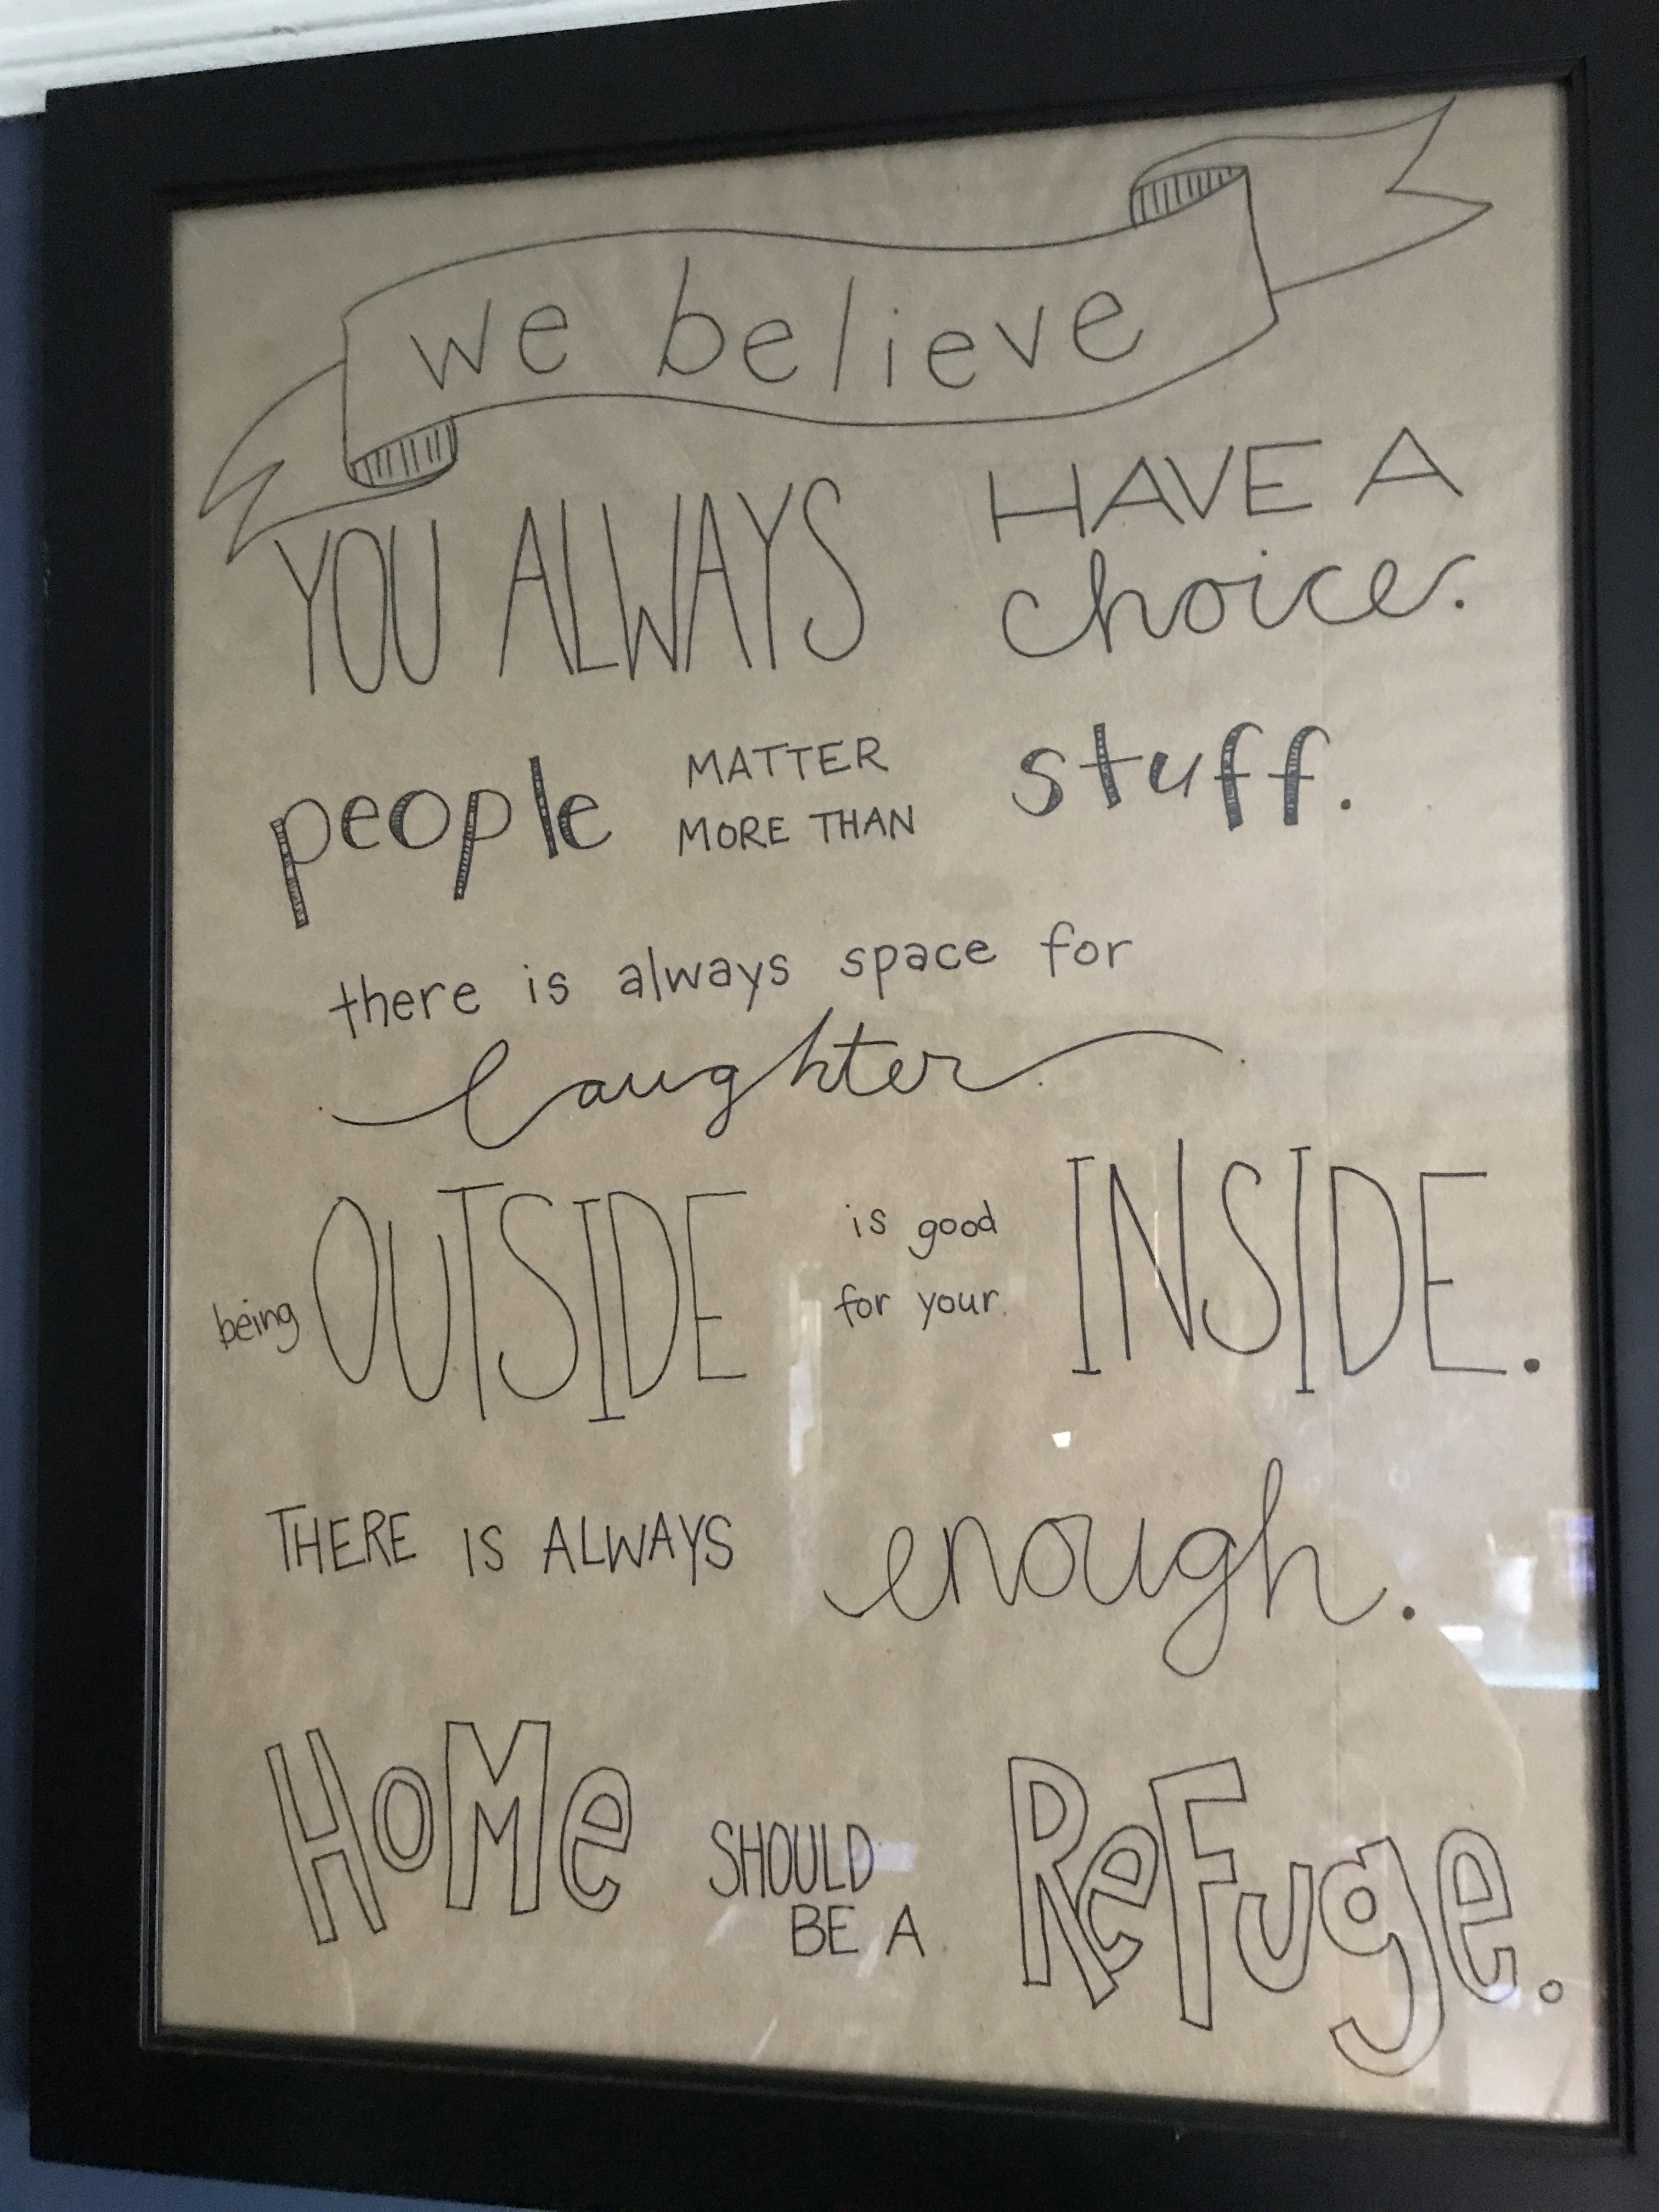 we believe
YOU ALWAYS HAVE A
choice.
people MATTER
MORE THAN stuff.
there is always space for
laughter.
being OUTSIDE is good
for your INSIDE.
THERE IS ALWAYS enough.
HoMe SHOULD
BE A ReFuge.